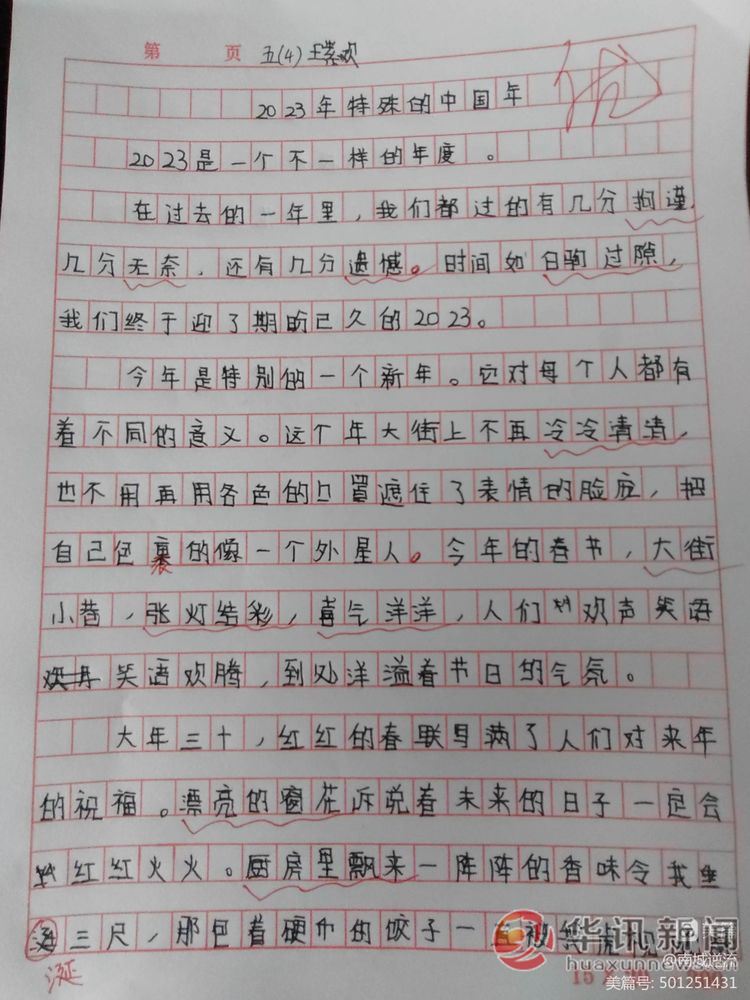 第 页 五(4) 王 欢
优
2023年特殊的中国年
2023是一个不一样的年度。
在过去的一年里，我们都过的有几分拘谨，
几分无奈，还有几分遗憾。时间如白驹过隙，
我们终于迎了期盼已久的2023。
今年是特别的一个新年。它对每个人都有
着不同的意义。这个年大街上不再冷冷清清，
也不用再用各色的口罩遮住了表情的脸庞，把
自己包裹的像一个外星人。今年的春节，大街
裹
小巷，张灯结彩，喜气洋洋，人们 欢声笑语
笑语欢腾，到处洋溢着节日的气氛。
大年三十，红红的春联写满了人们对来年
的祝福。漂亮的窗花诉说着未来的日子一定会
红红火火。厨房里飘来一阵阵的香味令我垂
三尺，那包着硬币的饺子一
涎
华讯新闻
huaxunnews.cn
@南城逆流
15
美篇号: 501251431